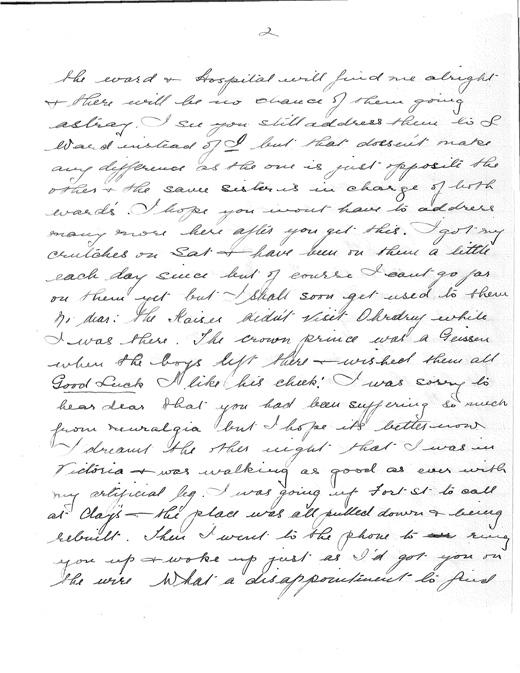 2
the ward + Hospital will find me alright
+ there will be no chance of them going
astray. I see you still address them to S
Ward instead of I but that doesn't make
any difference as the one is just opposite the
other + the same sister is in charge of both
wards. I hope you wont have to address
many more here after you get this. I got my
crutches on Sat + have been on them a little
each day since but of course I cant go far
on them yet but I shall soon get used to them
No dear: the Kaiser didn't visit Ohrdruf while
I was there. The crown prince was a Geissen
when the boys left there + wished them all
Good Luck I like his cheek! I was sorry to
hear dear that you had been suffering so much
from neuralgia but I hope its better now
I dreamt the other night that I was in
Victoria + was walking as good as ever with
my artificial leg. I was going up Fort St to call
at Clay's — the place was all pulled down + being
rebuilt. Then I went to the phone to ring
you up + woke up just as I'd got you on
the wire What a disappointment to find